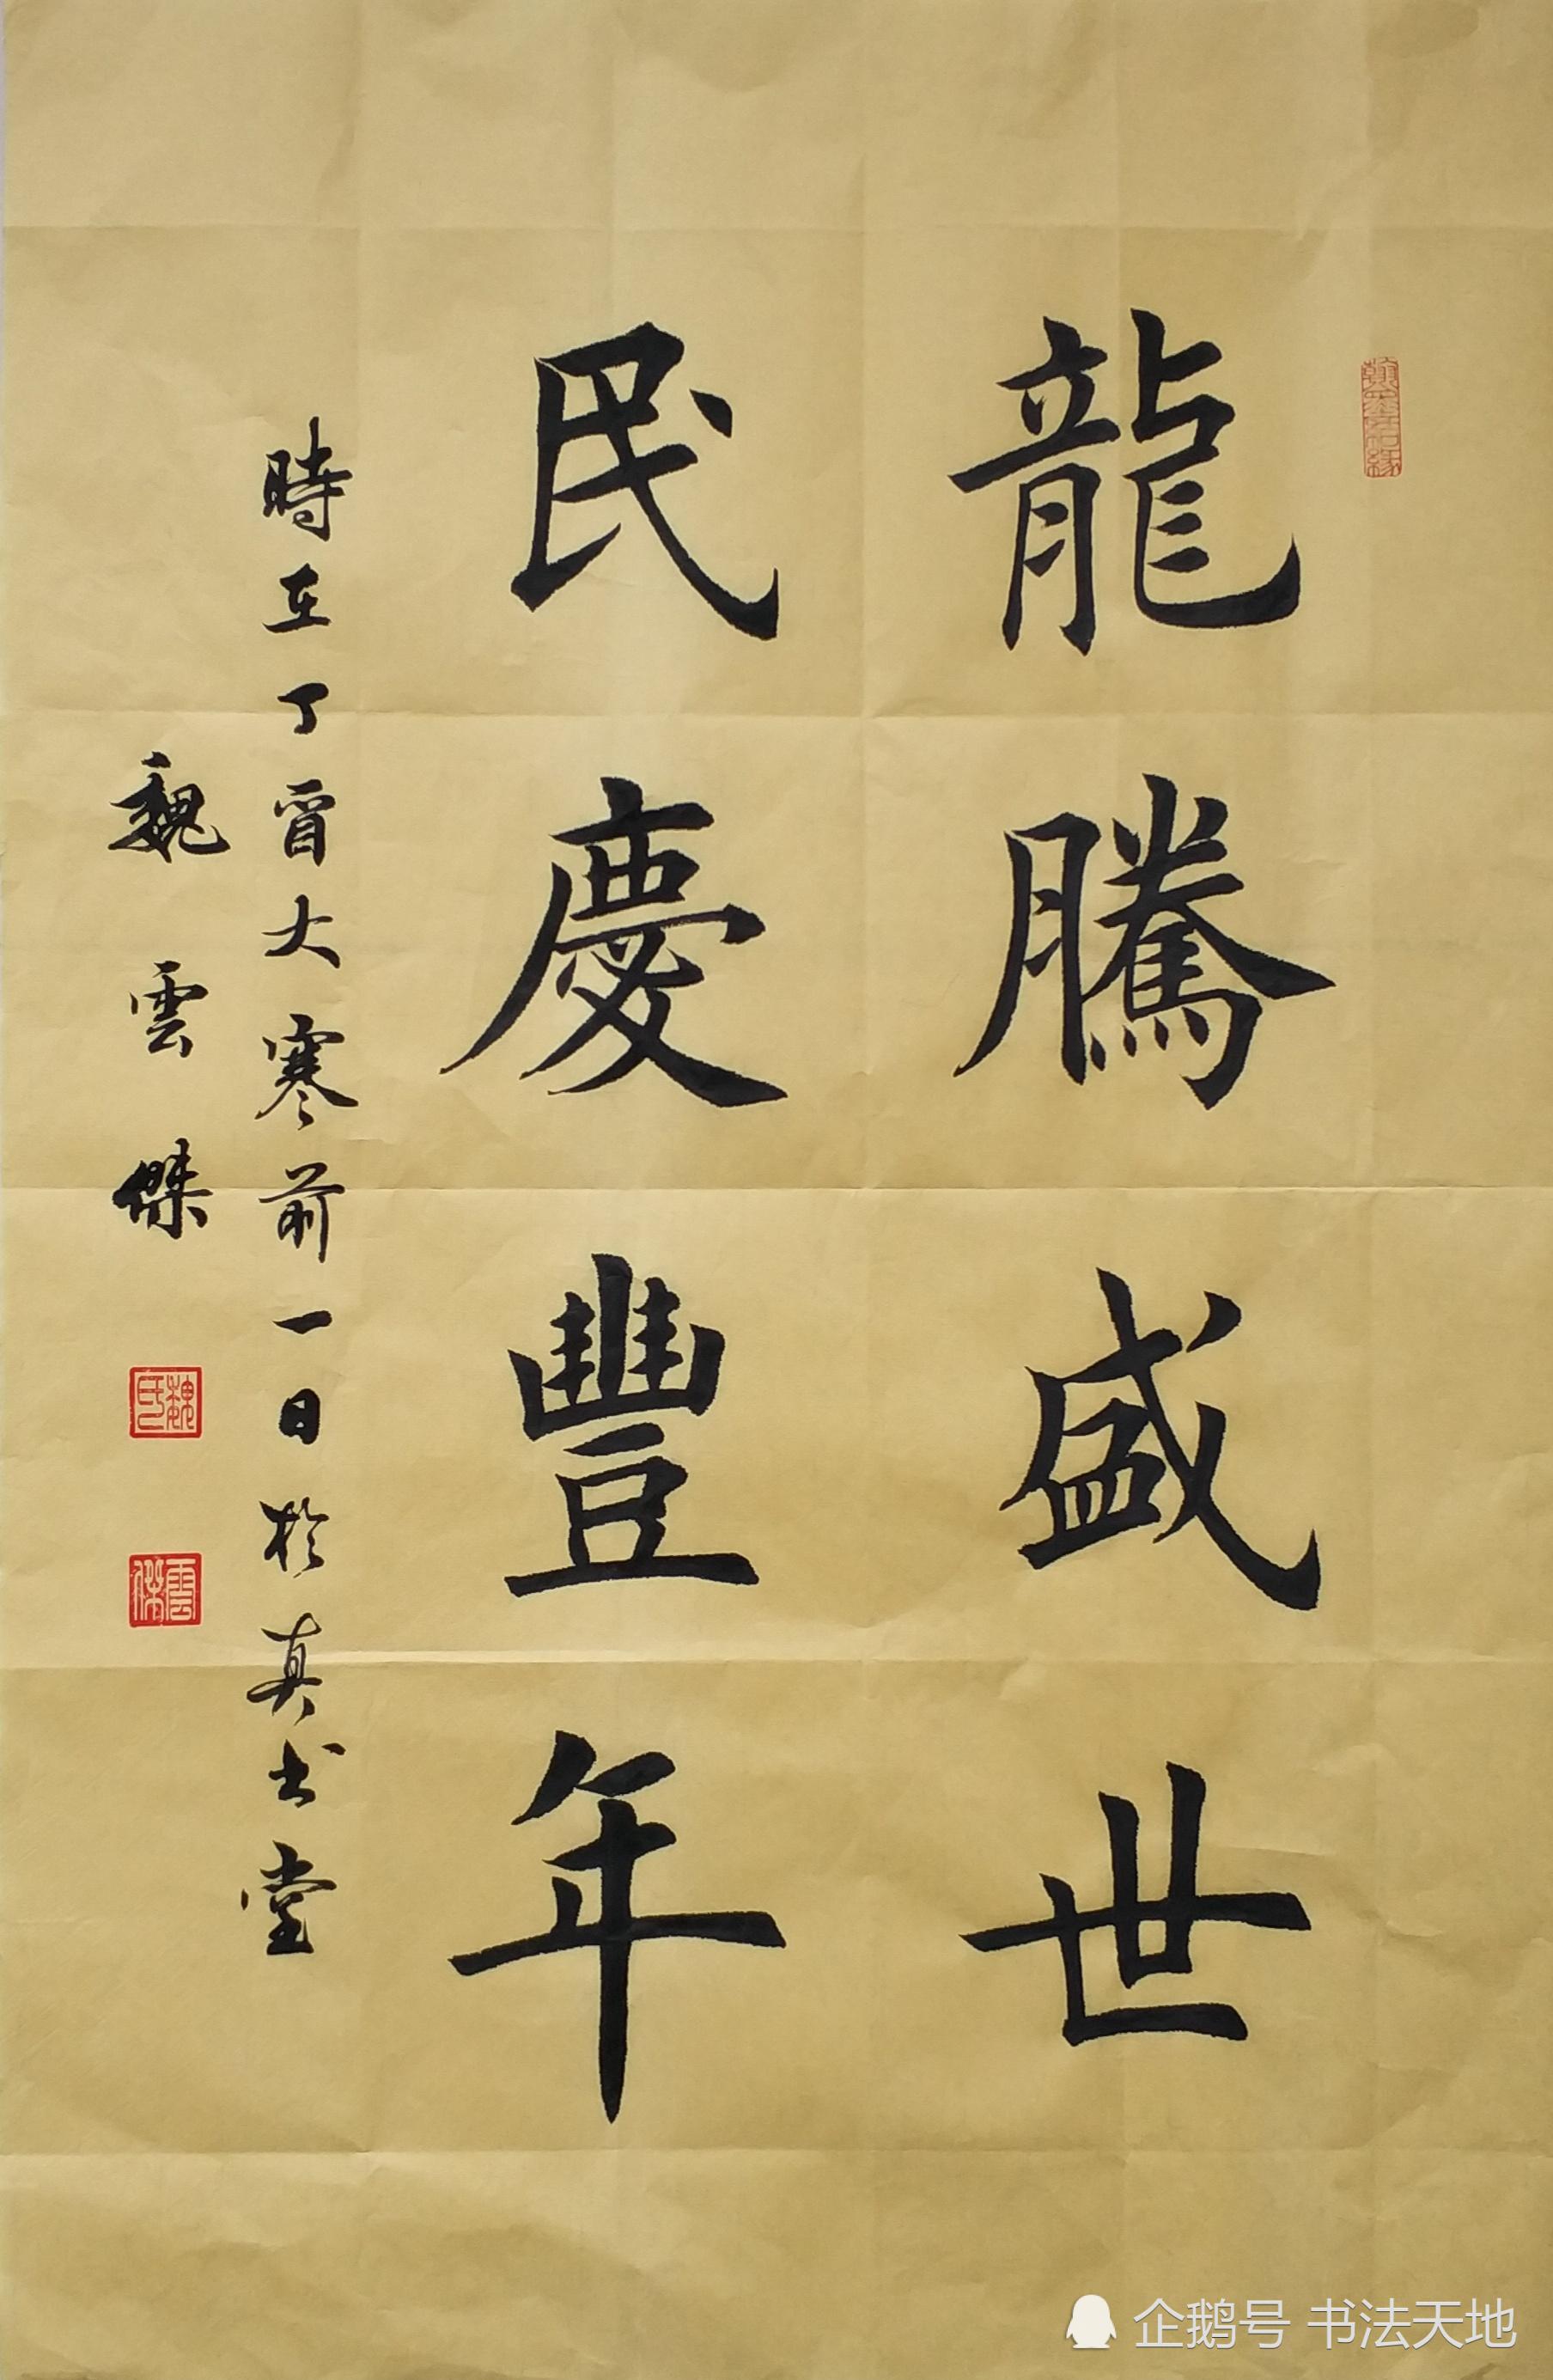 龍騰盛世
民慶豐年
時在丁酉大寒前一日於真书堂
魏雲傑
魏氏
雲傑
企鹅号 书法天地